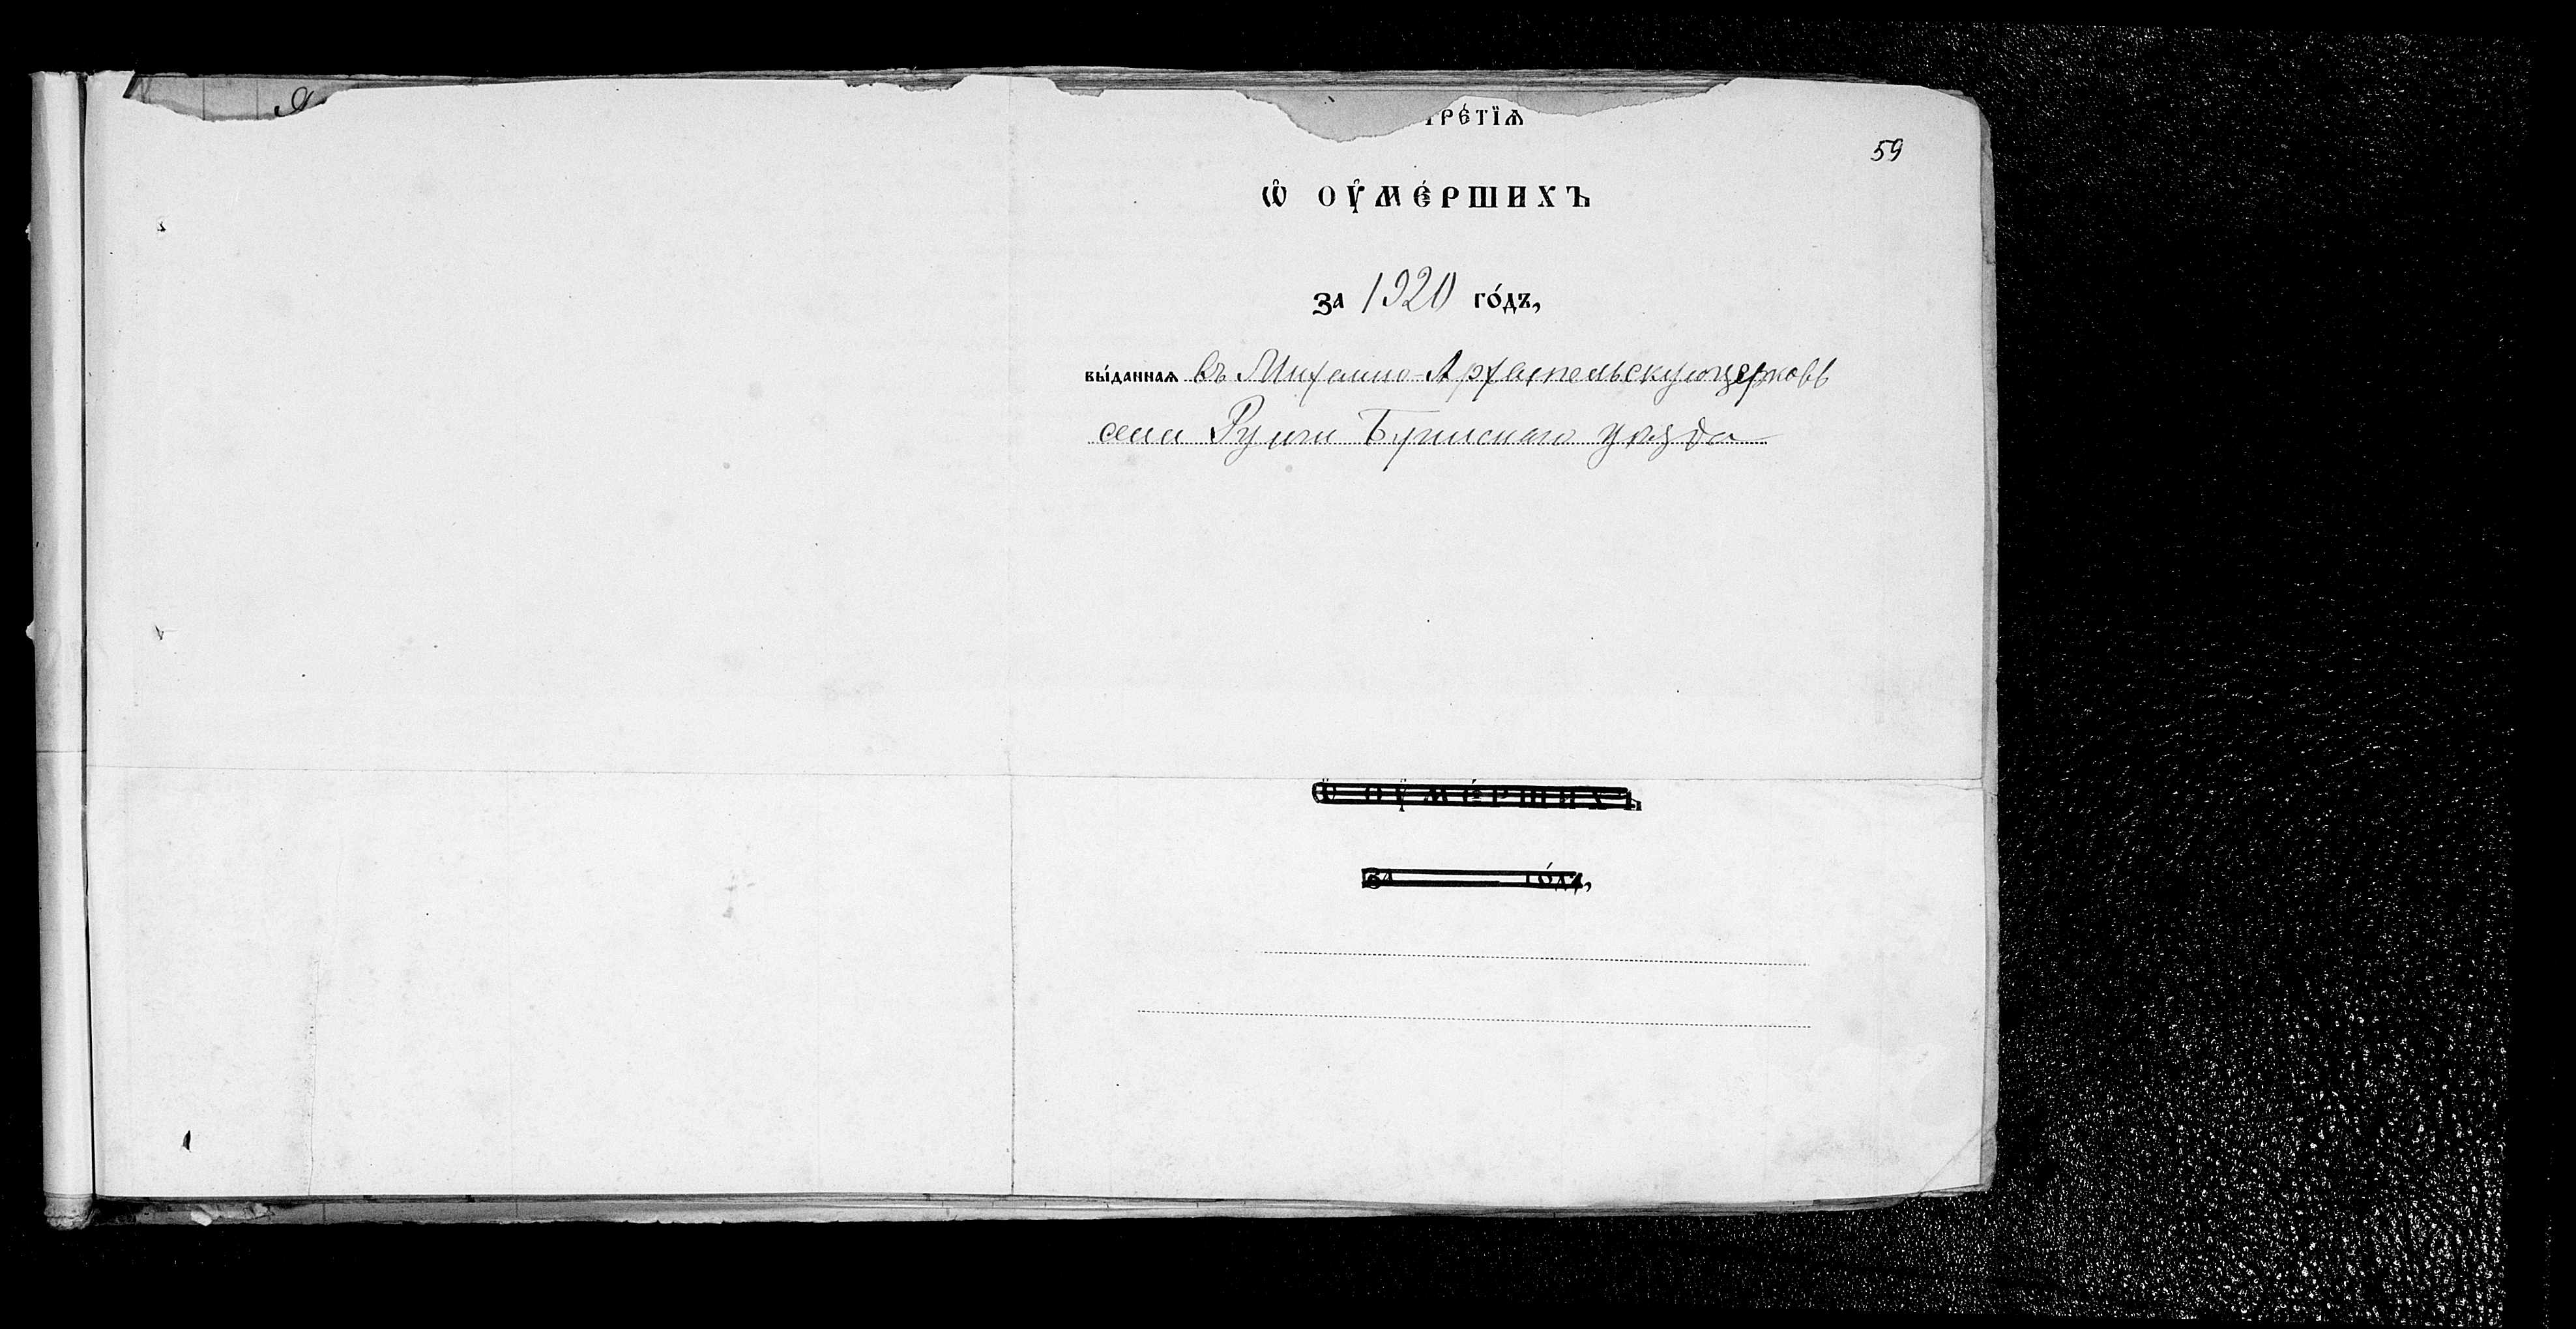 Я
ТРЕ́ТЇѦ
59
Ѡ҆ ОУ҆МЕ́РШИХЪ
за 1920 го́дъ,
вы́даннаѧ въ Михаило-Архангельскую церковь
села Буинскаго уезда
Ѡ҆ ОУ҆МЕ́РШИХЪ
за го́дъ,